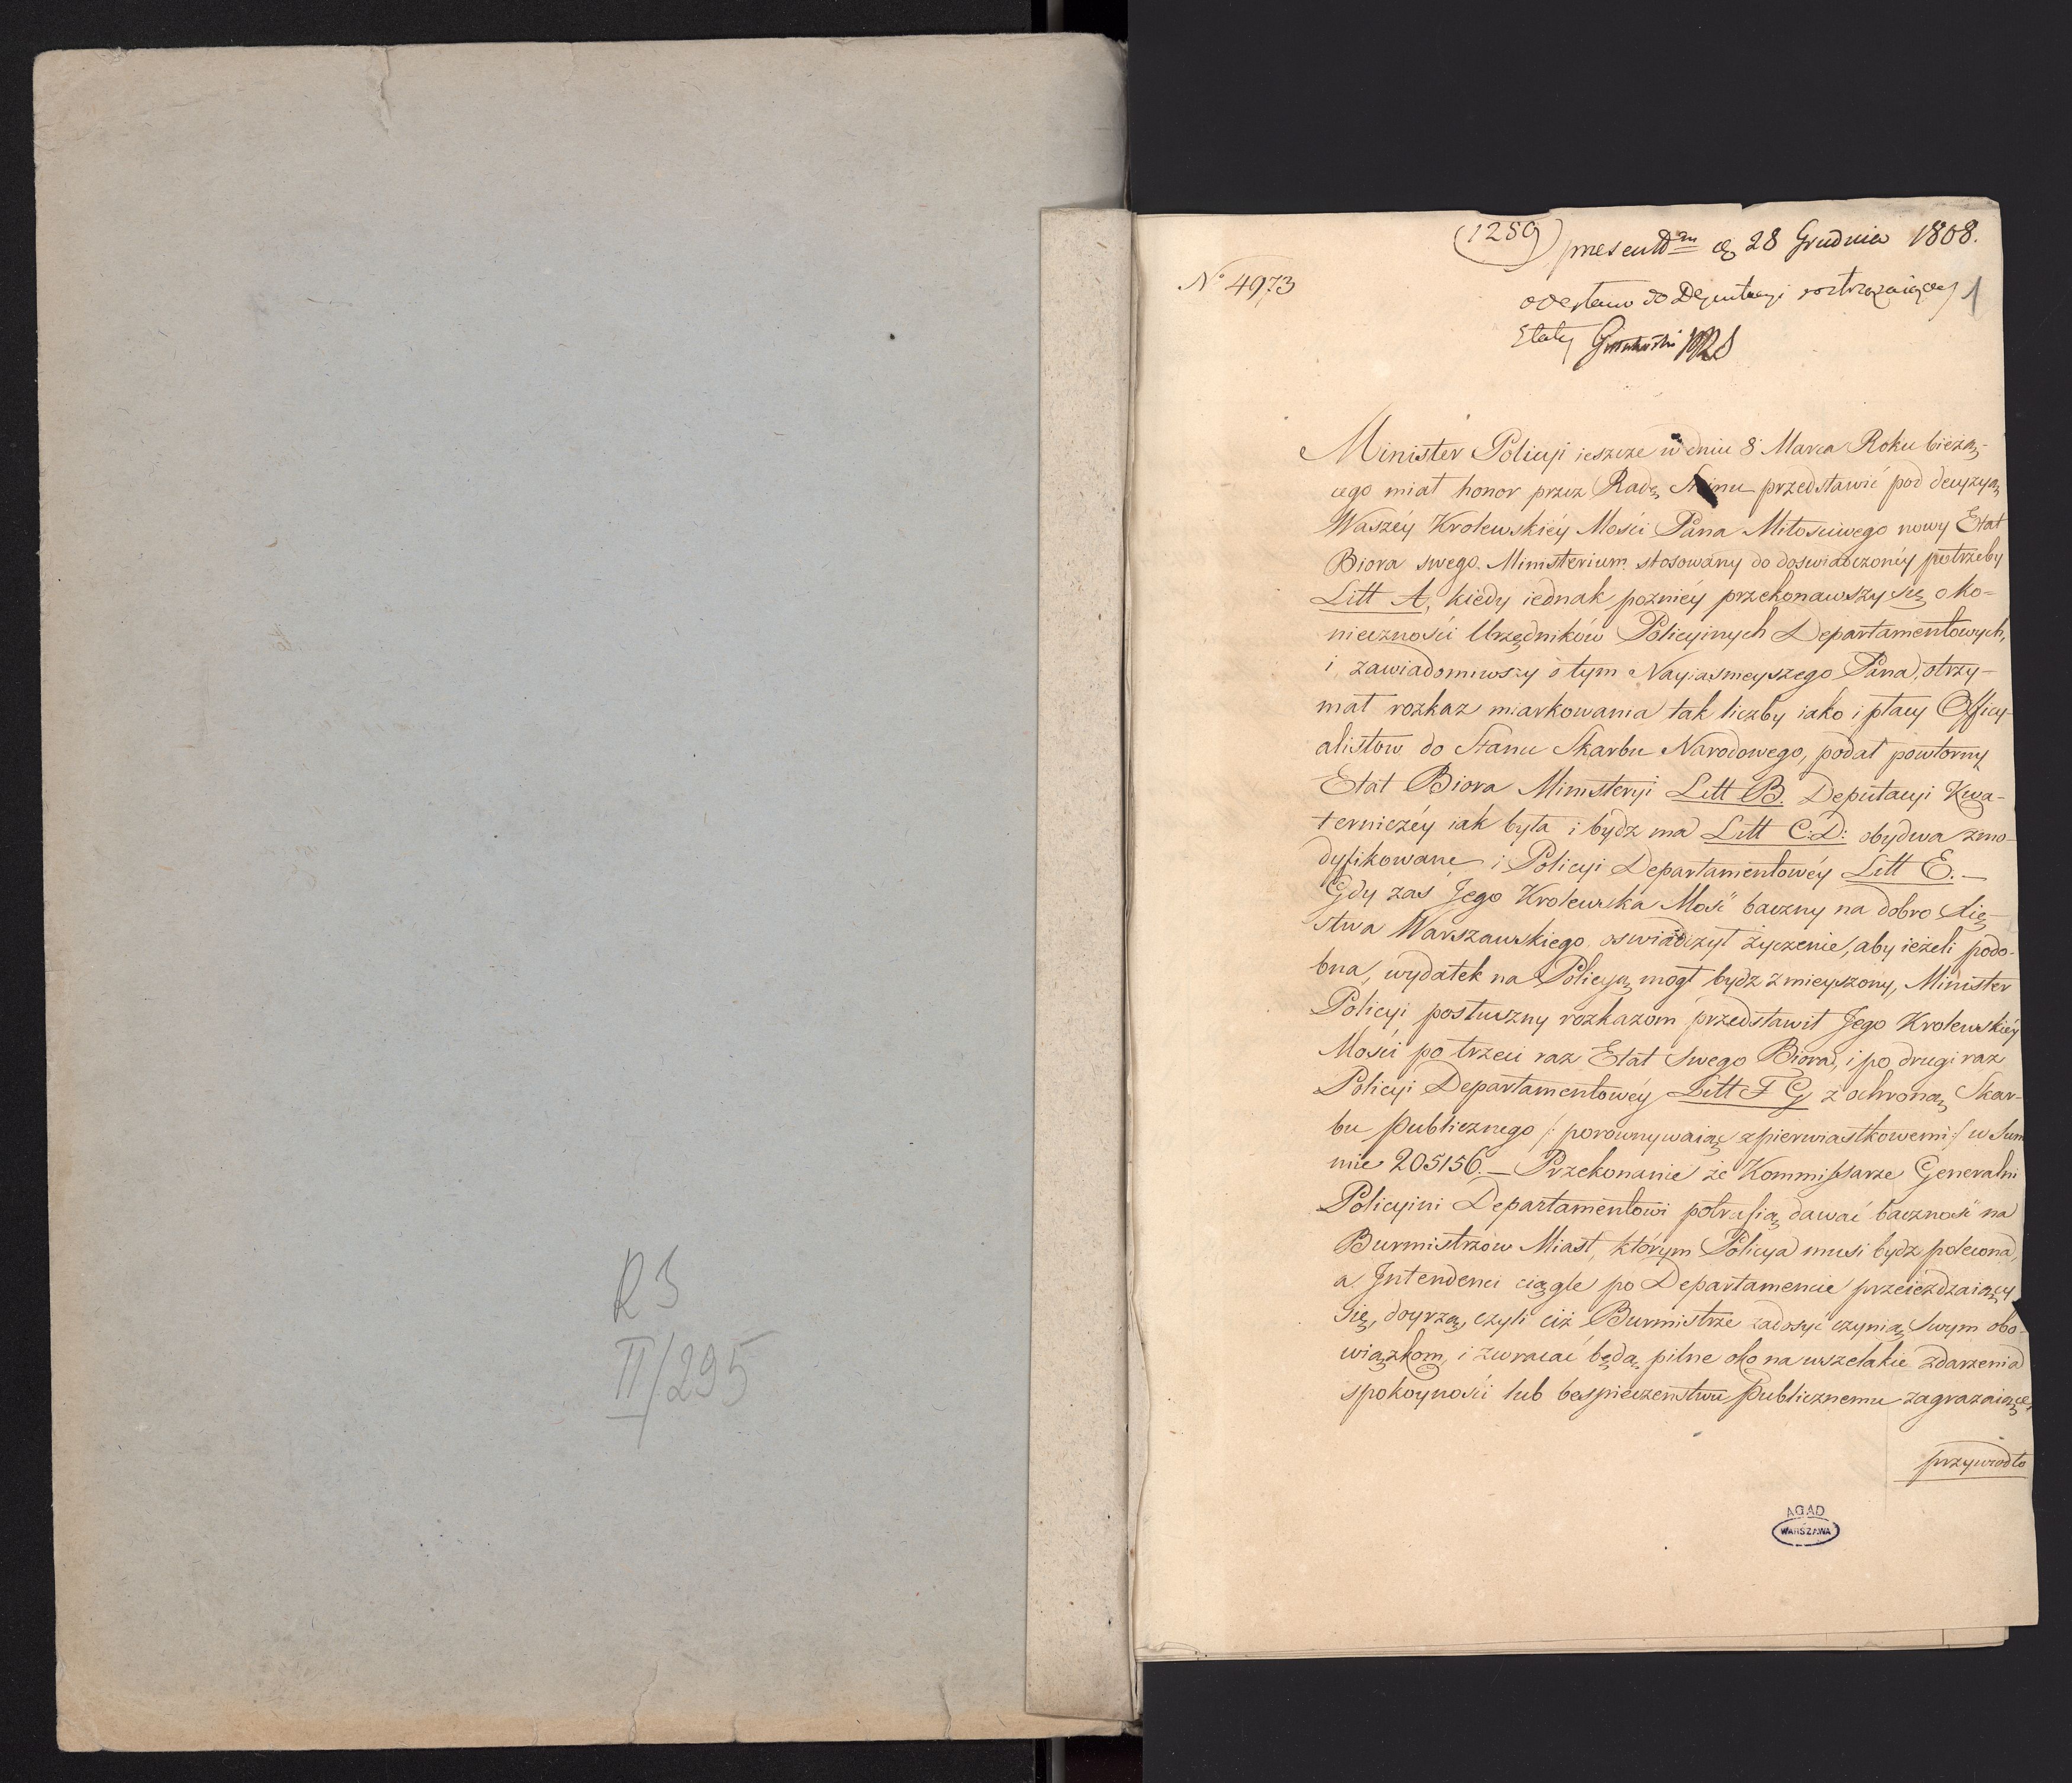 R3
II/295
(1289)
presentt d 28 Grudnia 1808.
N° 4973
odesłano do Deputacyi roztrząsaiącey
1
Etaty
Minister Policyi ieszcze w dniu 8 Marca Roku bieżą-
cego miał honor przez Radę Stanu przedstawić pod decyzyą
Waszéy Krolewskiéy Mości Pana Miłosciwego nowy Etat
Biora swego Ministerium stosowany do doswiadczonéy potrzeby
Litt A, kiedy iednak poznieý przekonawszy się o ko-
nieczności Urzędników Policyinych Departamentowych,
i zawiadomiwszy o tym Nayiasnieyszego Pana, otrzy-
mał rozkaz miarkowania tak liczby iako i płacy Officy-
alistow do Stanu Skarbu Narodowego, podał powtorny
Etat Biora Ministeryi Litt B. Deputacyi Kwa-
terniczéy iak była i bydz ma Litt C: D: obydwa zmo-
dyfikowane i Policyi Departamentowéy Litt E. —
Gdy zas Jego Krolewska Mość baczny na dobro Xię-
stwa Warszawskiego oswiadczył życzenie, aby ieżeli podo-
bna, wydatek na Policyą mogł bydz zmieyszony, Minister
Policyi posłuszny rozkazom przedstawił Jego Krolewskiéy
Mości po trzeci raz Etat Swego Biora, i po drugi raz
Policyi Departamentowéy Litt F G z ochroną Skar-
bu Publicznego /: porownywaiąc z pierwiastkowemi :/ w Sum
mie 205156. — Przekonanie że Kommissarze Generalni
Policyini Departamentowi potrafią dawać baczność na
Burmistrzów Miast, którym Policya musi bydz polecona,
a Intendenci ciągle po Departamencie przeieżdzaiący
się, doyrzą, czyli ciż Burmistrze zadosyć czynią Swym obo-
wiązkom, i zwracać będą pilne oko na wszelakie zdarzenia
spokoyności lub bespieczeństwu Publicznemu zagrazaiące,
przywiodło
AGAD
WARSZAWA